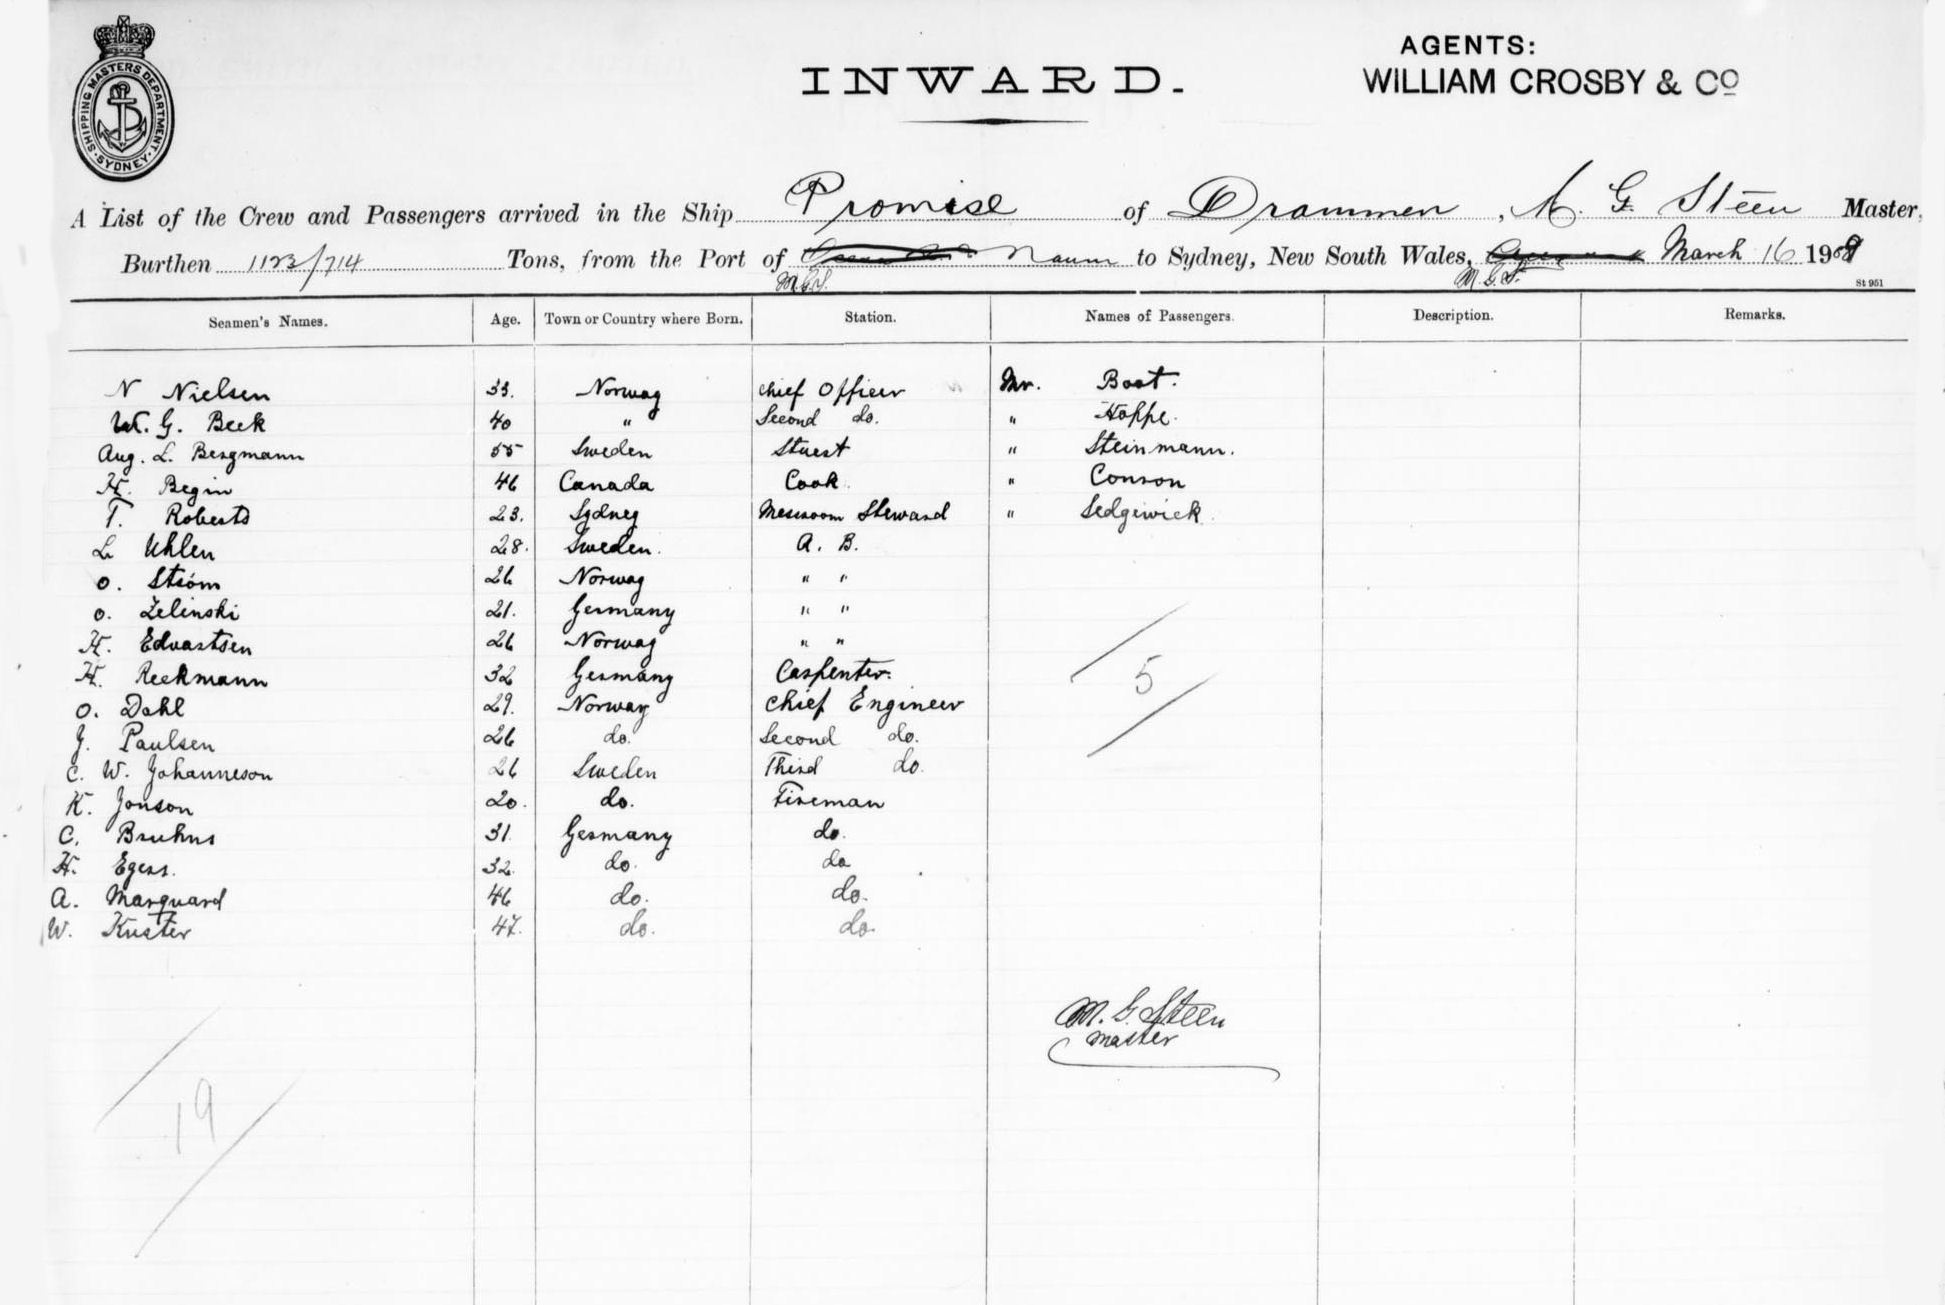 SHIPPING MASTERS DEPARTMENT. SYDNEY.
INWARD.
AGENTS:
WILLIAM CROSBY & Co
A List of the Crew and Passengers arrived in the Ship Promise of Drammen, M. G. Steen Master,
Burthen 1123/714 Tons, from the Port of Nauru to Sydney, New South Wales, March 16 1909
M.G.S. M.G.S.
St 951
Seamen's Names. Age. Town or Country where Born. Station. Names of Passengers. Description. Remarks.
N Nielsen 33. Norway Chief Officer Mr. Boat.
W. G. Beck 40 " Second do. " Hoppe.
Aug. L. Bergmann 55 Sweden Stuert " Steinmann.
H. Begin 46 Canada Cook. " Conson
T. Roberts 23. Sydney Messroom Steward " Sedgewick.
L Uhlen 28. Sweden. A. B.
O. Strøm 26 Norway " "
O. Zelinski 21. Germany " "
H. Edvartsen 26 Norway " "
H. Reekmann 32 Germany Carpenter.
O. Dahl 29. Norway Chief Engineer
J. Paulsen 26 do. Second do.
C. W. Johanneson 26 Sweden Third do.
K. Jonson 20. do. Fireman
C. Bruhns 31. Germany do.
H. Egers. 32. do. do
A. Marquard 46 do. do.
W. Kuster 47. do. do.
5
M. G. Steen
Master
19